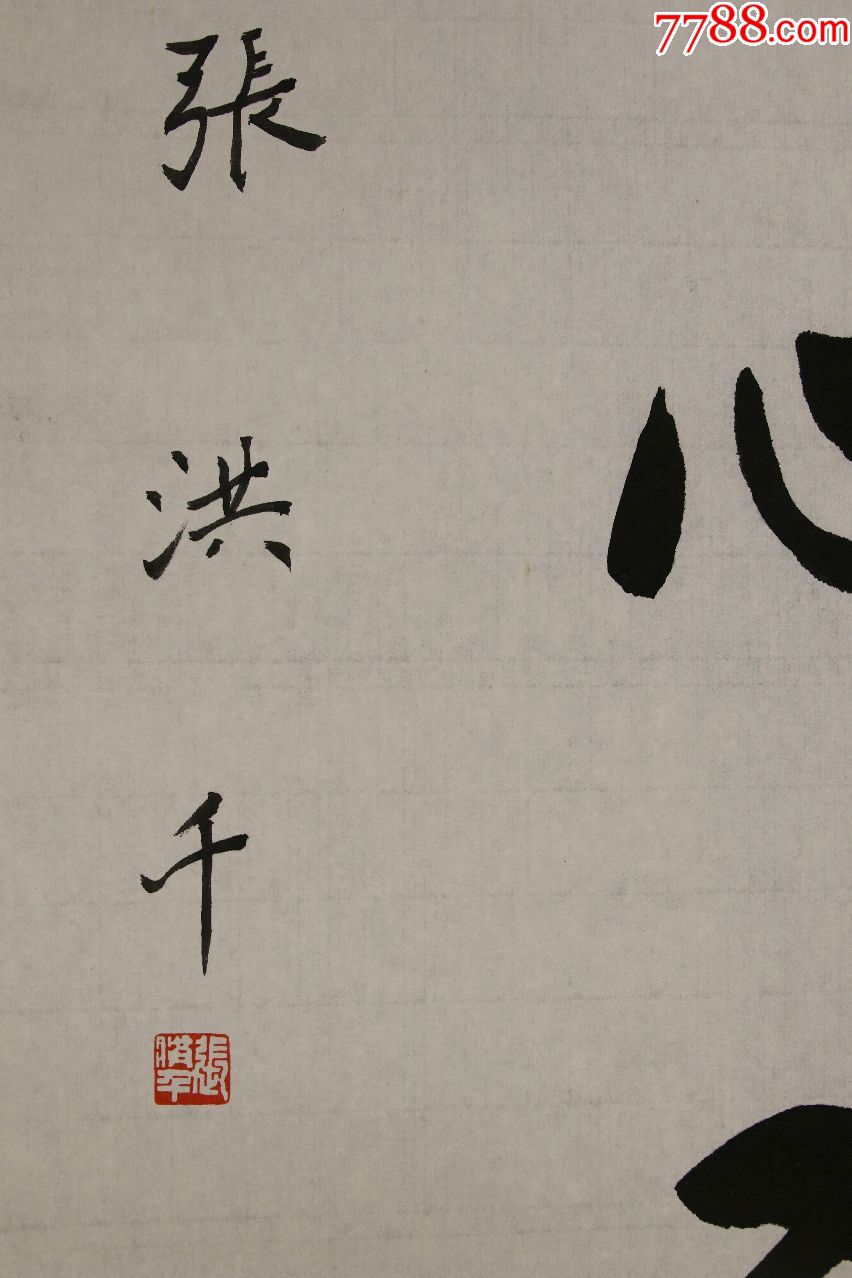 7788.com
張洪千